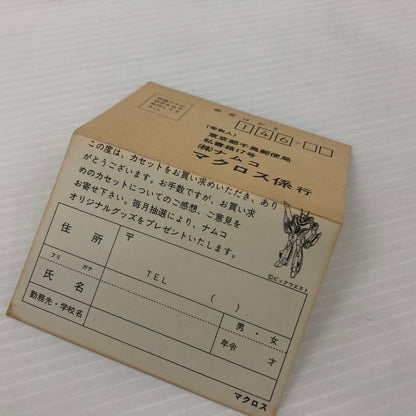 郵便はがき
146-
(受取人)
東京都千鳥郵便局
私書箱17号
(株)ナムコ
マクロス係行
この度は、カセットをお買い求めいただき、あり
がとうございます。お手数ですが、お買い求
めのカセットについてのご感想、ご意見を
お寄せ下さい。毎月抽選により、ナムコ
オリジナルグッズをプレゼントいたします。
©ビックウエスト
住所
〒
TEL ( )
フリ ガナ
氏名
男・女
年令 才
勤務先・学校名
マクロス